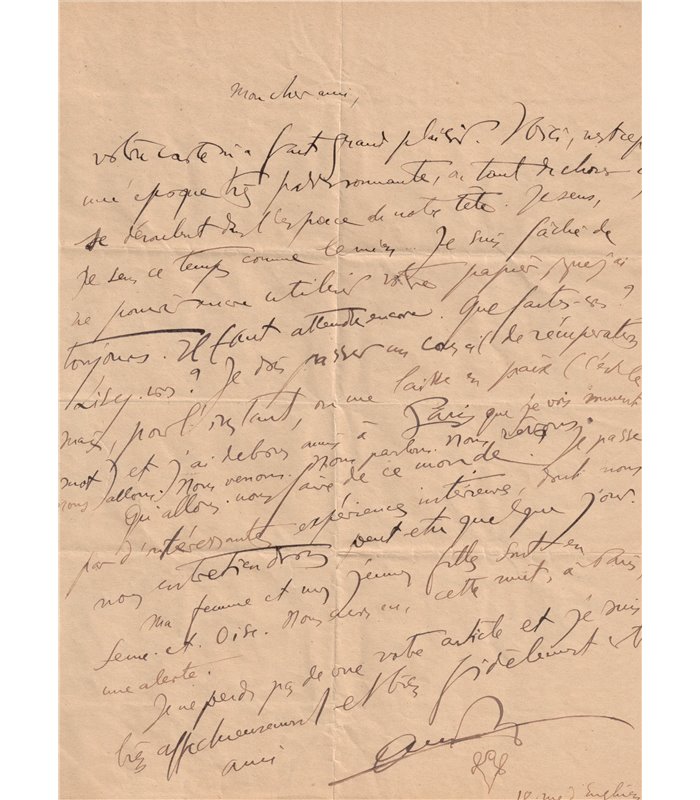 Mon cher ami,
votre carte m'a fait grand plaisir. Voici, n'est-ce p
une époque très passionnante, où tant de choses
se déroulent dans l'espace de notre tête. Je sens,
Je sens ce temps comme le mien. Je suis fâché de
ne pouvoir encore utiliser votre papier que j'ai
toujours. Il faut attendre encore. Que faites-vs ?
Lisez-vs ? Je dois passer un conseil de récupération
mais, pour l'instant, on me laisse en paix (c'est le
mot) et j'ai de bons amis à Paris que je vois souvent
nous allons. Nous venons. Nous parlons. Nous
Qu'allons-nous faire de ce monde. Je passe
par d'intéressantes expériences intérieures, dont nous
nous entretiendrons peut-être quelque jour.
Ma femme et mes jeunes filles sont en
Seine-et-Oise. Nous avons eu, cette nuit, à Paris,
une alerte.
Je ne perds pas de vue votre article et je suis
très affectueusement et très fidèlement votre
ami
18 rue d'Enghien